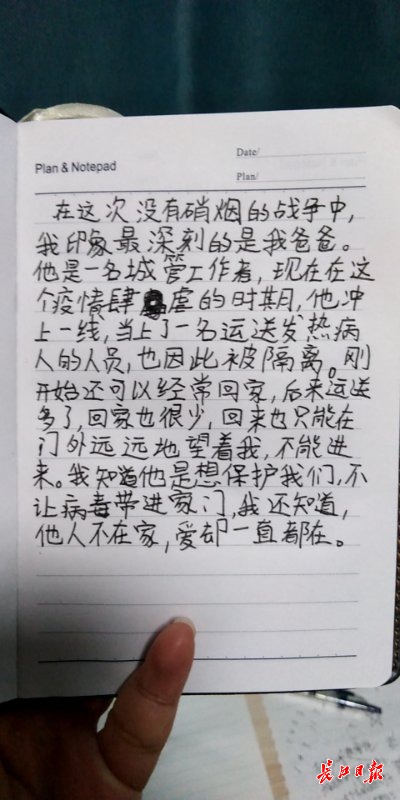 Date/
Plan & Notepad
Plan/
在这次没有硝烟的战争中,
我印象最深刻的是我爸爸。
他是一名城管工作者,现在在这
个疫情肆虐的时期,他冲
上一线,当上了一名运送发热病
人的人员,也因此被隔离。刚
开始还可以经常回家,后来运送
多了,回家也很少,回来也只能在
门外远远地望着我,不能进
来。我知道他是想保护我们,不
让病毒带进家门,我还知道,
他人不在家,爱却一直都在。
长江日报